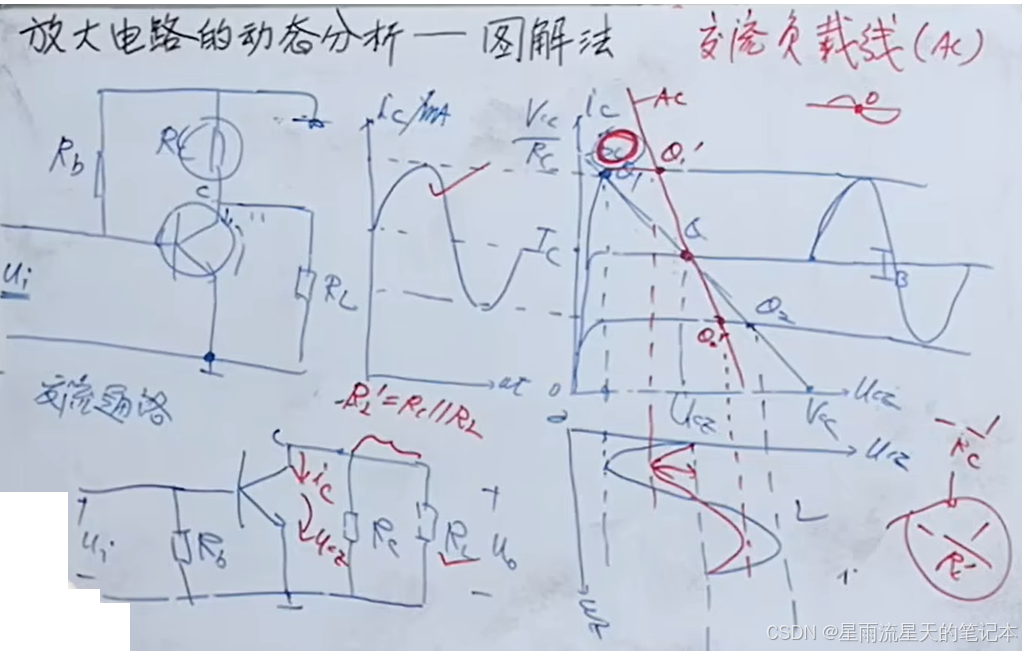 放大电路的动态分析一图解法 交流负载线(AC)
Rb
Rc
c
RL
ui
ic/mA
ωt
Vcc
Rc
Ic
ic
AC
Q1'
Q1
Q
Q2
Q2'
IB
0
UCE
Vcc
UCE
交流通路
RL'=Rc//RL
UCE
ωt
c
ic
uCE
+
ui
-
Rb
Rc
RL
+
uo
-
-1/
Rc
-1/
RL'
CSDN @星雨流星天的笔记本